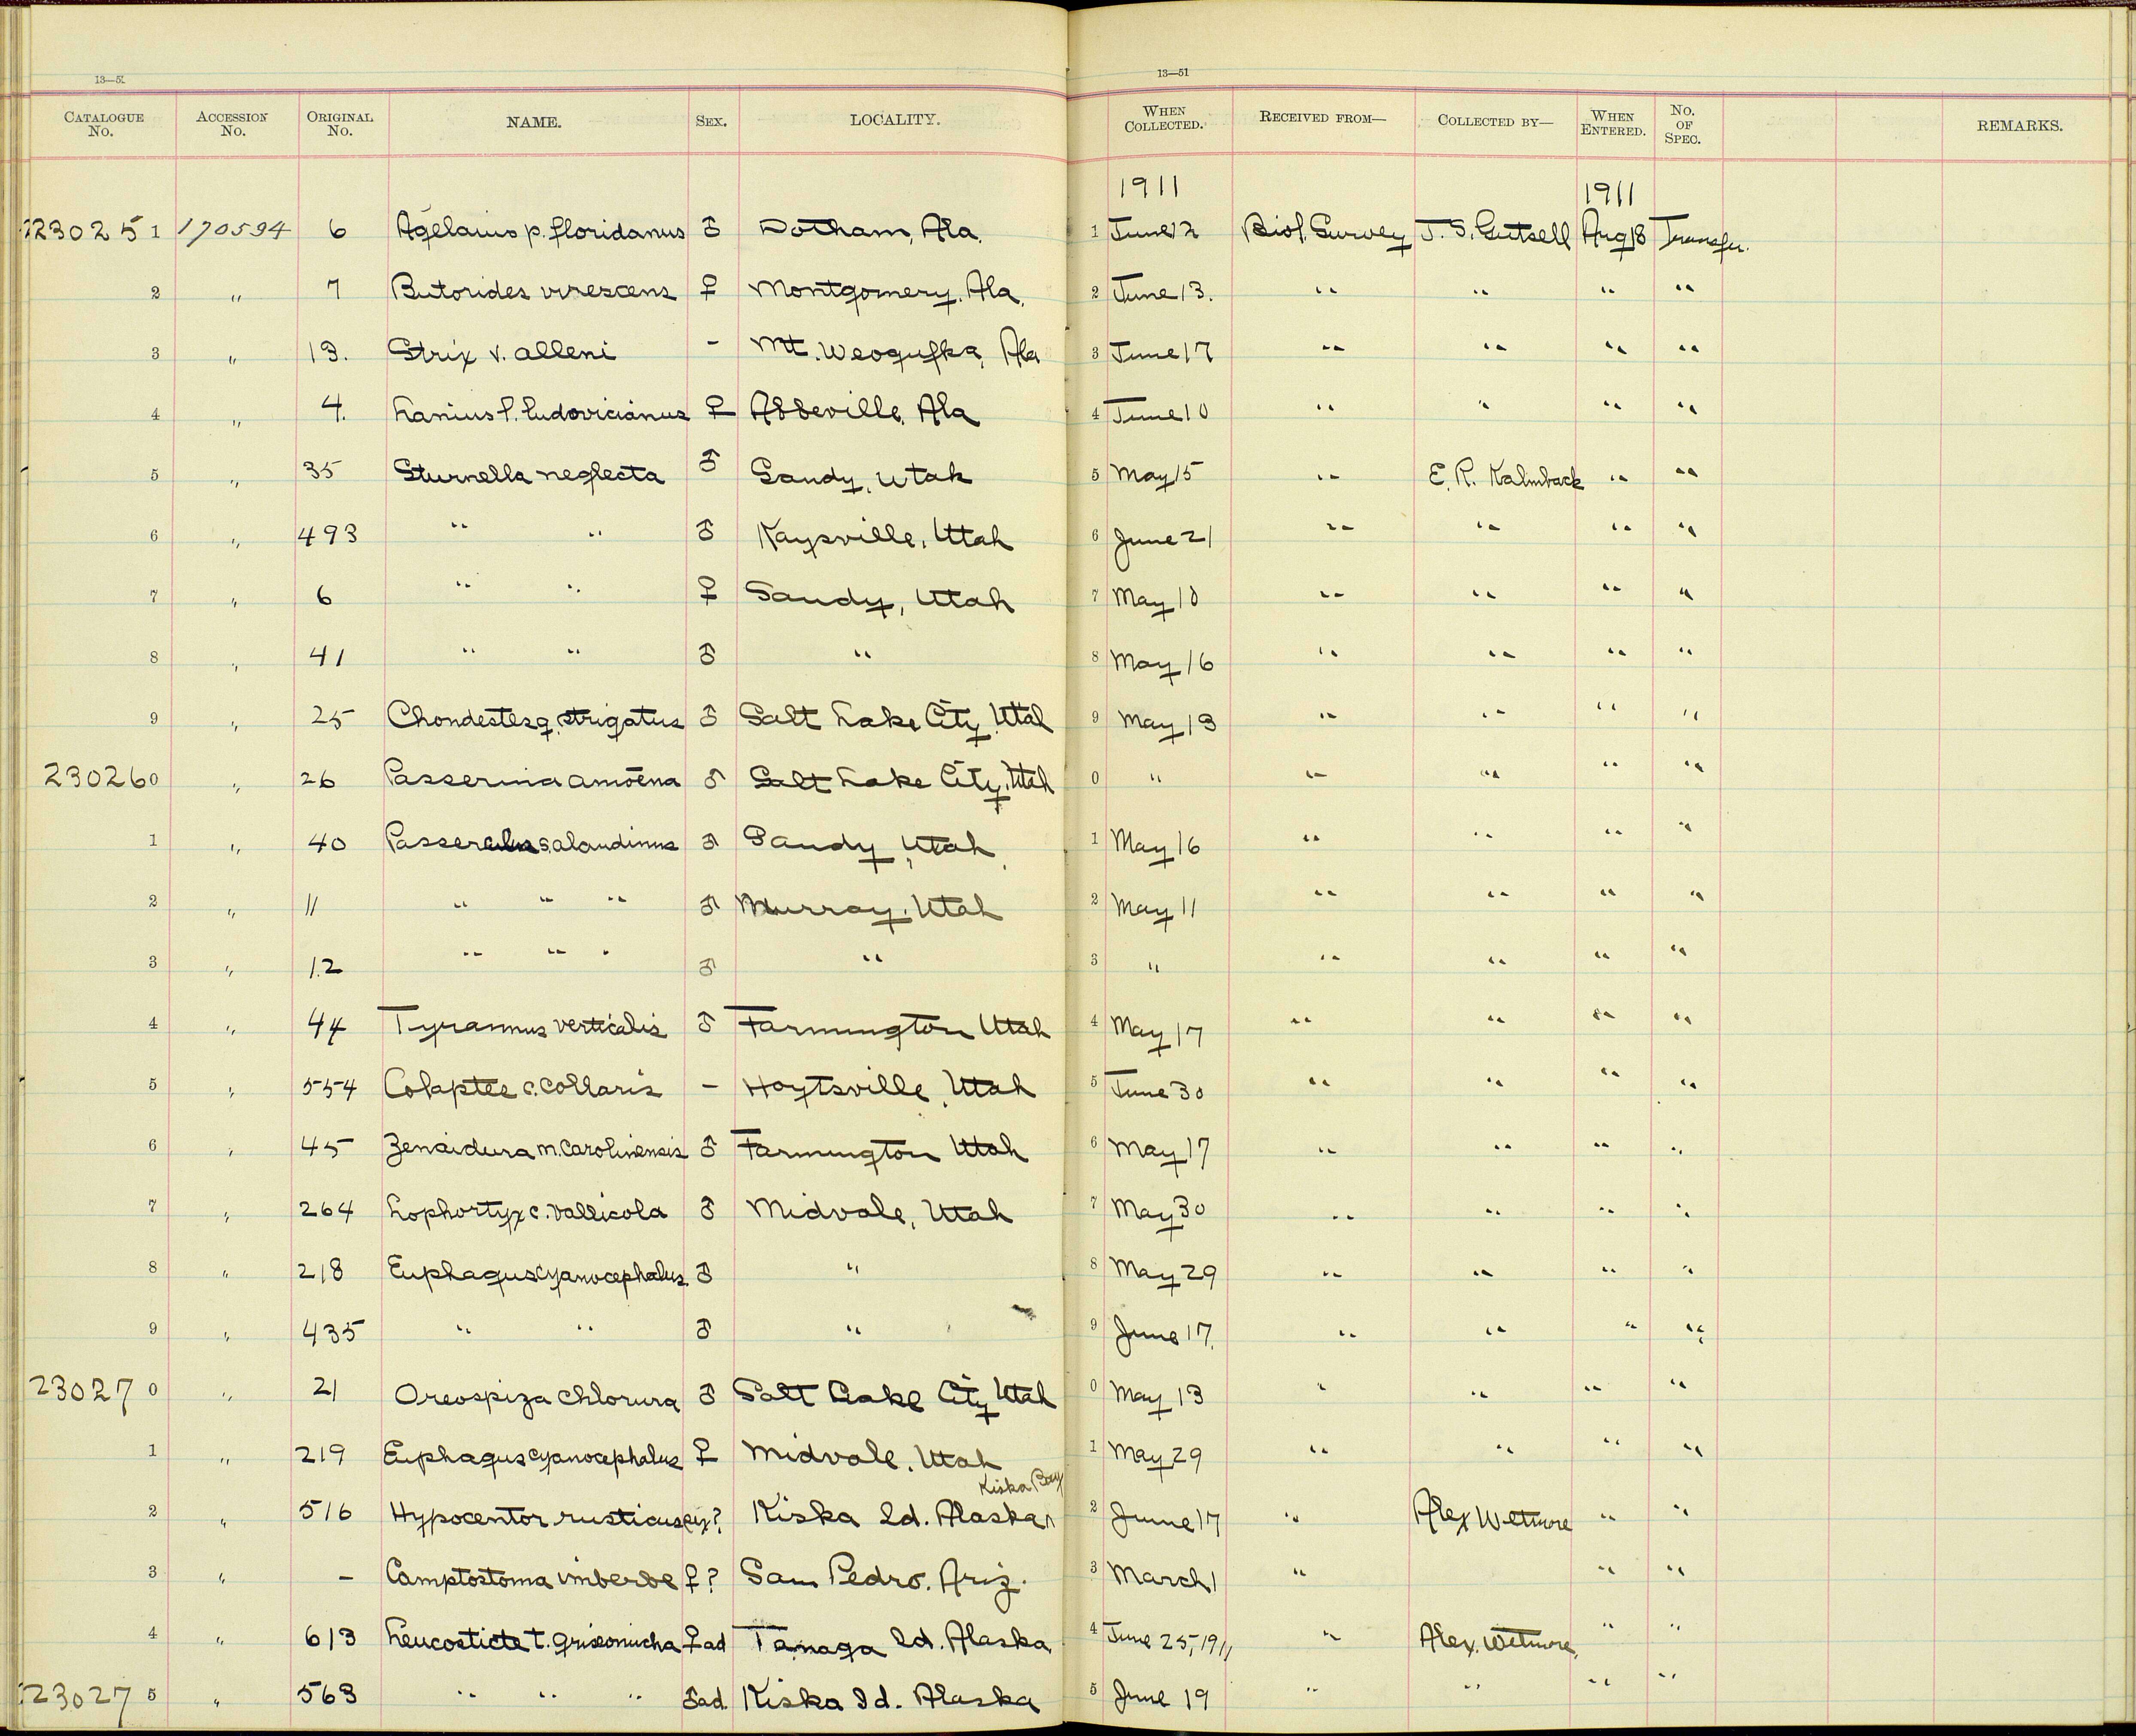 13—51 13—51
CATALOGUE No. ACCESSION No. ORIGINAL No. NAME. SEX. LOCALITY. WHEN COLLECTED. RECEIVED FROM— COLLECTED BY— WHEN ENTERED. No. OF SPEC. REMARKS.
1911 1911
230251 170594 6 Agelaius p. floridanus ♂ Dotham, Ala. 1 June 12 Biol. Survey J. S. Gutsell Aug 18 Transfer.
2 " 7 Butorides virescens ♀ Montgomery, Ala. 2 June 13. " " " "
3 " 13. Strix v. alleni - Mt. Weogufka, Ala 3 June 17 " " " "
4 " 4. Lanius l. ludovicianus ♀ Abbeville, Ala 4 June 10 " " " "
5 " 35 Sturnella neglecta ♂ Sandy, Utah 5 May 15 " E. R. Kalmback " "
6 " 493 " " ♂ Kaysville, Utah 6 June 21 " " " "
7 " 6 " " ♀ Sandy, Utah 7 May 10 " " " "
8 " 41 " " ♂ " 8 May 16 " " " "
9 " 25 Chondestes g. strigatus ♂ Salt Lake City, Utah 9 May 13 " " " "
230260 " 26 Passerina amoena ♂ Salt Lake City, Utah 0 " " " " "
1 " 40 Passerculus s. alaudinus ♂ Sandy, Utah 1 May 16 " " " "
2 " 11 " " " ♂ Murray, Utah 2 May 11 " " " "
3 " 12 " " " ♂ " 3 " " " " "
4 " 44 Tyrannus verticalis ♂ Farmington Utah 4 May 17 " " " "
5 " 554 Colaptes c. collaris - Hoytsville, Utah 5 June 30 " " " "
6 " 45 Zenaidura m. carolinensis ♂ Farmington Utah 6 May 17 " " " "
7 " 264 Lophortyx c. vallicola ♂ Midvale, Utah 7 May 30 " " " "
8 " 218 Euphagus cyanocephalus ♂ " 8 May 29 " " " "
9 " 435 " " ♂ " 9 June 17. " " " "
230270 " 21 Oreospiza chlorura ♂ Salt Lake City Utah 0 May 13 " " " "
1 " 219 Euphagus cyanocephalus ♀ Midvale, Utah 1 May 29 " " " "
Kiska Bay
2 " 516 Hypocentor rusticus ? Kiska Id. Alaska 2 June 17 " Alex Wetmore " "
3 " - Camptostoma imberbe ♀? San Pedro, Ariz. 3 March 1 " " "
4 " 613 Leucosticte t. griseonucha ♀ad Tanaga Id. Alaska 4 June 25, 1911 " Alex. Wetmore, " "
230275 " 563 " " " ♂ad. Kiska Id. Alaska 5 June 19 " " " "